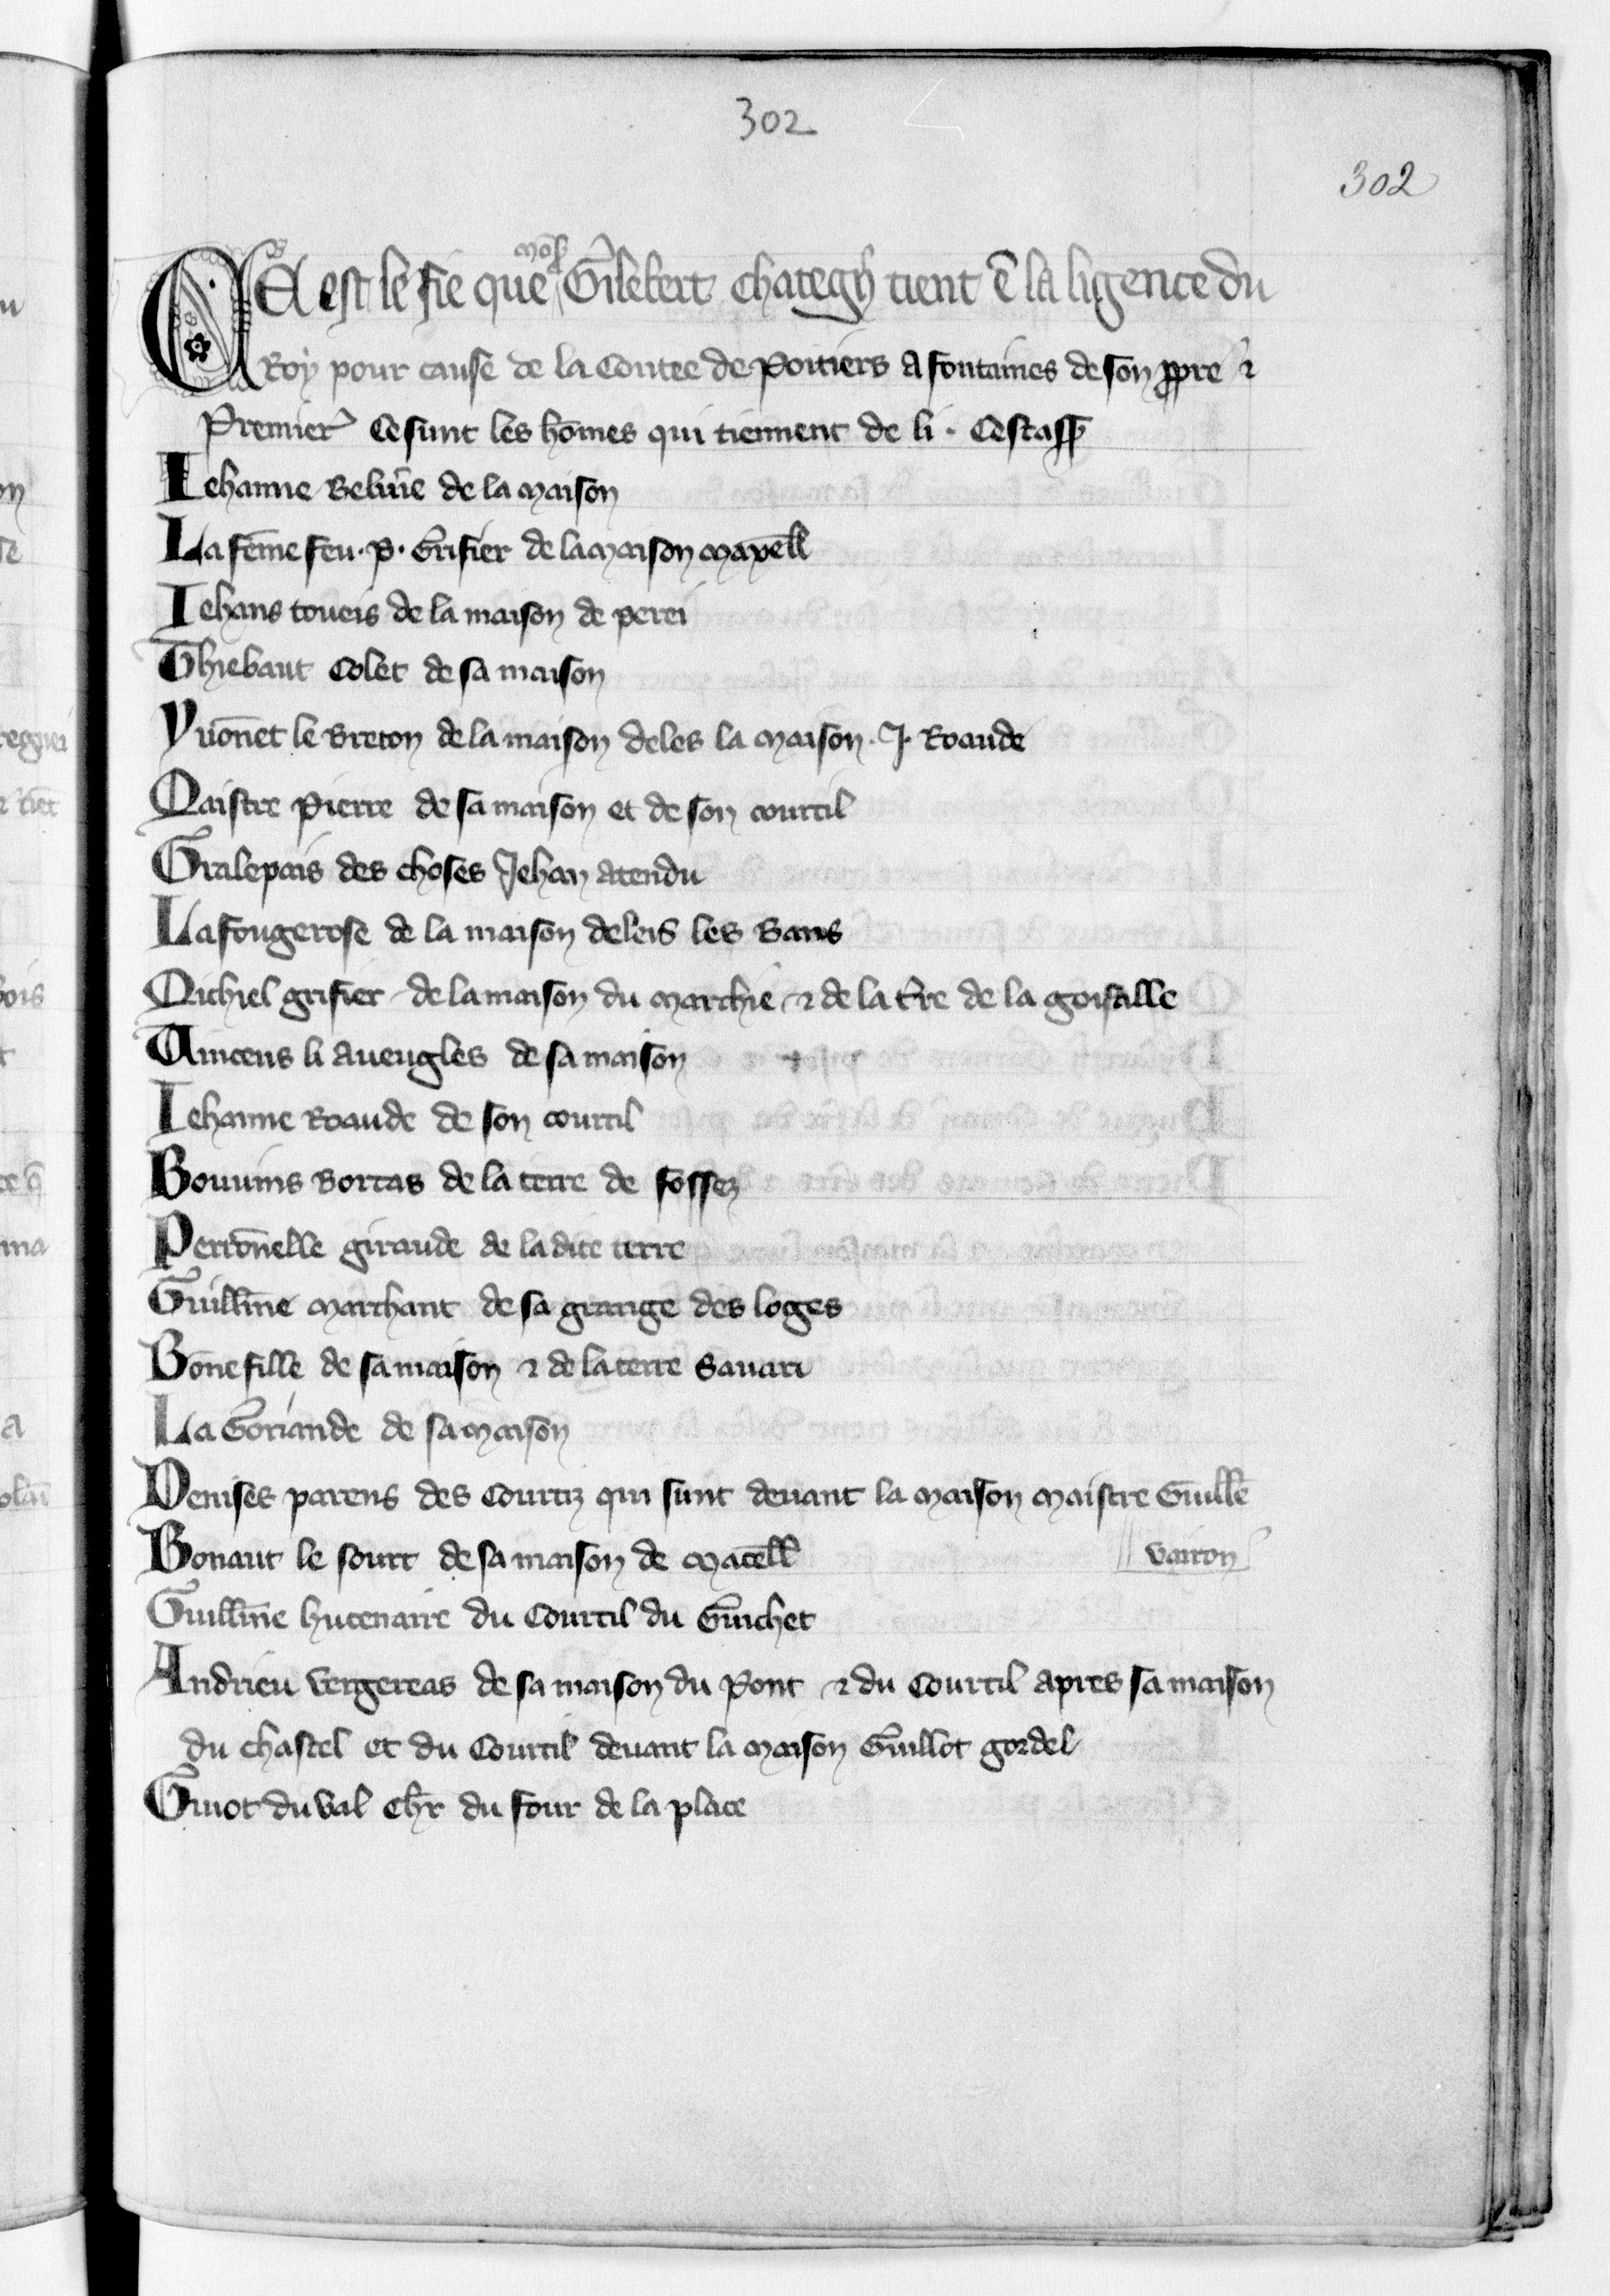 302
302
mōs̄
C'est le fie que Gilebert chategn̄ tient ē la ligence du
Roy pour cause de la Contee de Poitiers a fontaines de son ppre ⁊
Premier̄ Ce sunt les hōmes qui tiennent de li . Cest ass̄
Jehanne de la maison
La fēme feu . P . Grifier de la maison
Jehans toueis de la maison de perei
Thiebaut Colet de sa maison
Yuōnet le Breton de la maison deles la maison . J . Roaude
Maistre Pierre de sa maison et de son courtil
Gralepais des choses Jehan atendu
La fougerose de la maison deleis les Bans
Michiel grifier de la maison du marchie ⁊ de la t̄re de la goisalle
Vincens li aueugles de sa maison
Jehanne Roaude de son courtil
Bouuins Bortas de la terre de fossez
Perrōnelle giraude de la dite terre
Guill̄me marchant de sa grange des loges
Bōne fille de sa maison ⁊ de la terre Sauari
La Goriande de sa maison
Denises parens des Courtiz qui sunt deuant la maison maistre Guill̄e
Vairon
Bonaut le sourt de sa maison de macell̄
Guill̄me hucenaire du Courtil du Guichet
Andrieu vergereas de sa maison du Pont ⁊ du Courtil apres sa maison
du chastel et du Courtil deuant la maison Guillot gordel
Guiot du val ch̄r du four de la place